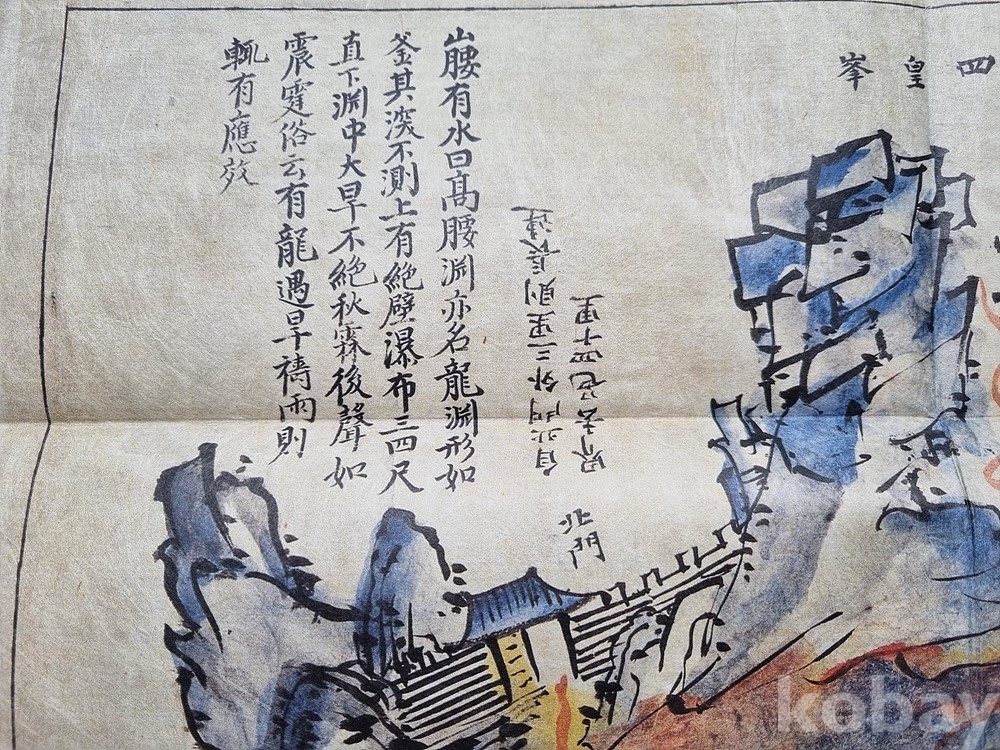 四皇峯
山腰有水曰高腰淵亦名龍淵形如
釜其深不測上有絶壁瀑布三四尺
直下淵中大旱不絶秋霖後聲如
震霆俗云有龍遇旱禱雨則
輒有應效
自北門外三里則長連
界去邑四十里
北門
kobay